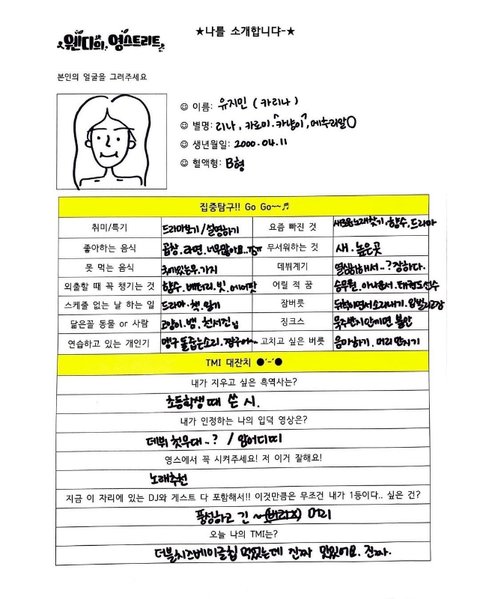 ★나를 소개합니다~★
웬디의 영스트리트
본인의 얼굴을 그려주세요
☺ 이름: 유지민 (카리나)
☺ 별명: 리나, 카르미, 카냥이, 메추리알
☺ 생년월일: 2000.04.11
☺ 혈액형: B형
집중탐구!! Go Go~~♬
취미/특기 드라마보기/설명하기 요즘 빠진 것 새로운노래찾기, 향수, 드라마
좋아하는 음식 곱창, 라면, 너무많아요.. 무서워하는 것 새, 높은곳
못 먹는 음식 가지 데뷔계기 열심히해서..? 장하다.
외출할 때 꼭 챙기는 것 향수, 배터리, 빗, 에어팟 어릴 적 꿈 승무원, 아나운서, 태권도선수
스케줄 없는 날 하는 일 드라마, 책, 일기 잠버릇
닮은꼴 동물 or 사람 고양이, 뱀, 징크스 묵주반지안끼면 불안
연습하고 있는 개인기 맹구 돌잡는소리, 짱구 고치고 싶은 버릇 음마하기, 머리 만지기
TMI 대잔치 ●'-'●
내가 지우고 싶은 흑역사는?
초등학생 때 쓴 시.
내가 인정하는 나의 입덕 영상은?
데뷔 첫무대..? / 입어디띠
영스에서 꼭 시켜주세요! 저 이거 잘해요!
노래추천
지금 이 자리에 있는 DJ와 게스트 다 포함해서!! 이것만큼은 무조건 내가 1등이다.. 싶은 건?
풍성하고 긴 머리
오늘 나의 TMI는?
더블치즈베이글칩 먹었는데 진짜 맛있어요. 진짜.